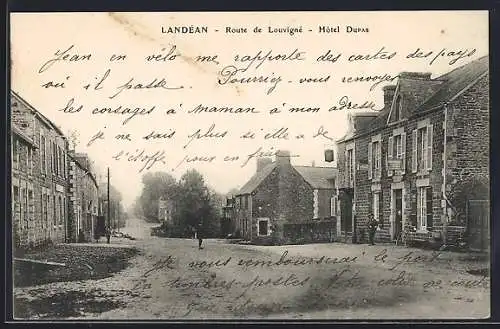 LANDÉAN - Route de Louvigné - Hôtel DUPAS
Jean en vélo me rapporte des cartes des pays
où il passe. Pourriez-vous renvoyer
les corsages à maman à mon adresse
je ne sais plus si elle a de
l'étoffe pour en
Je vous rembourserai le port